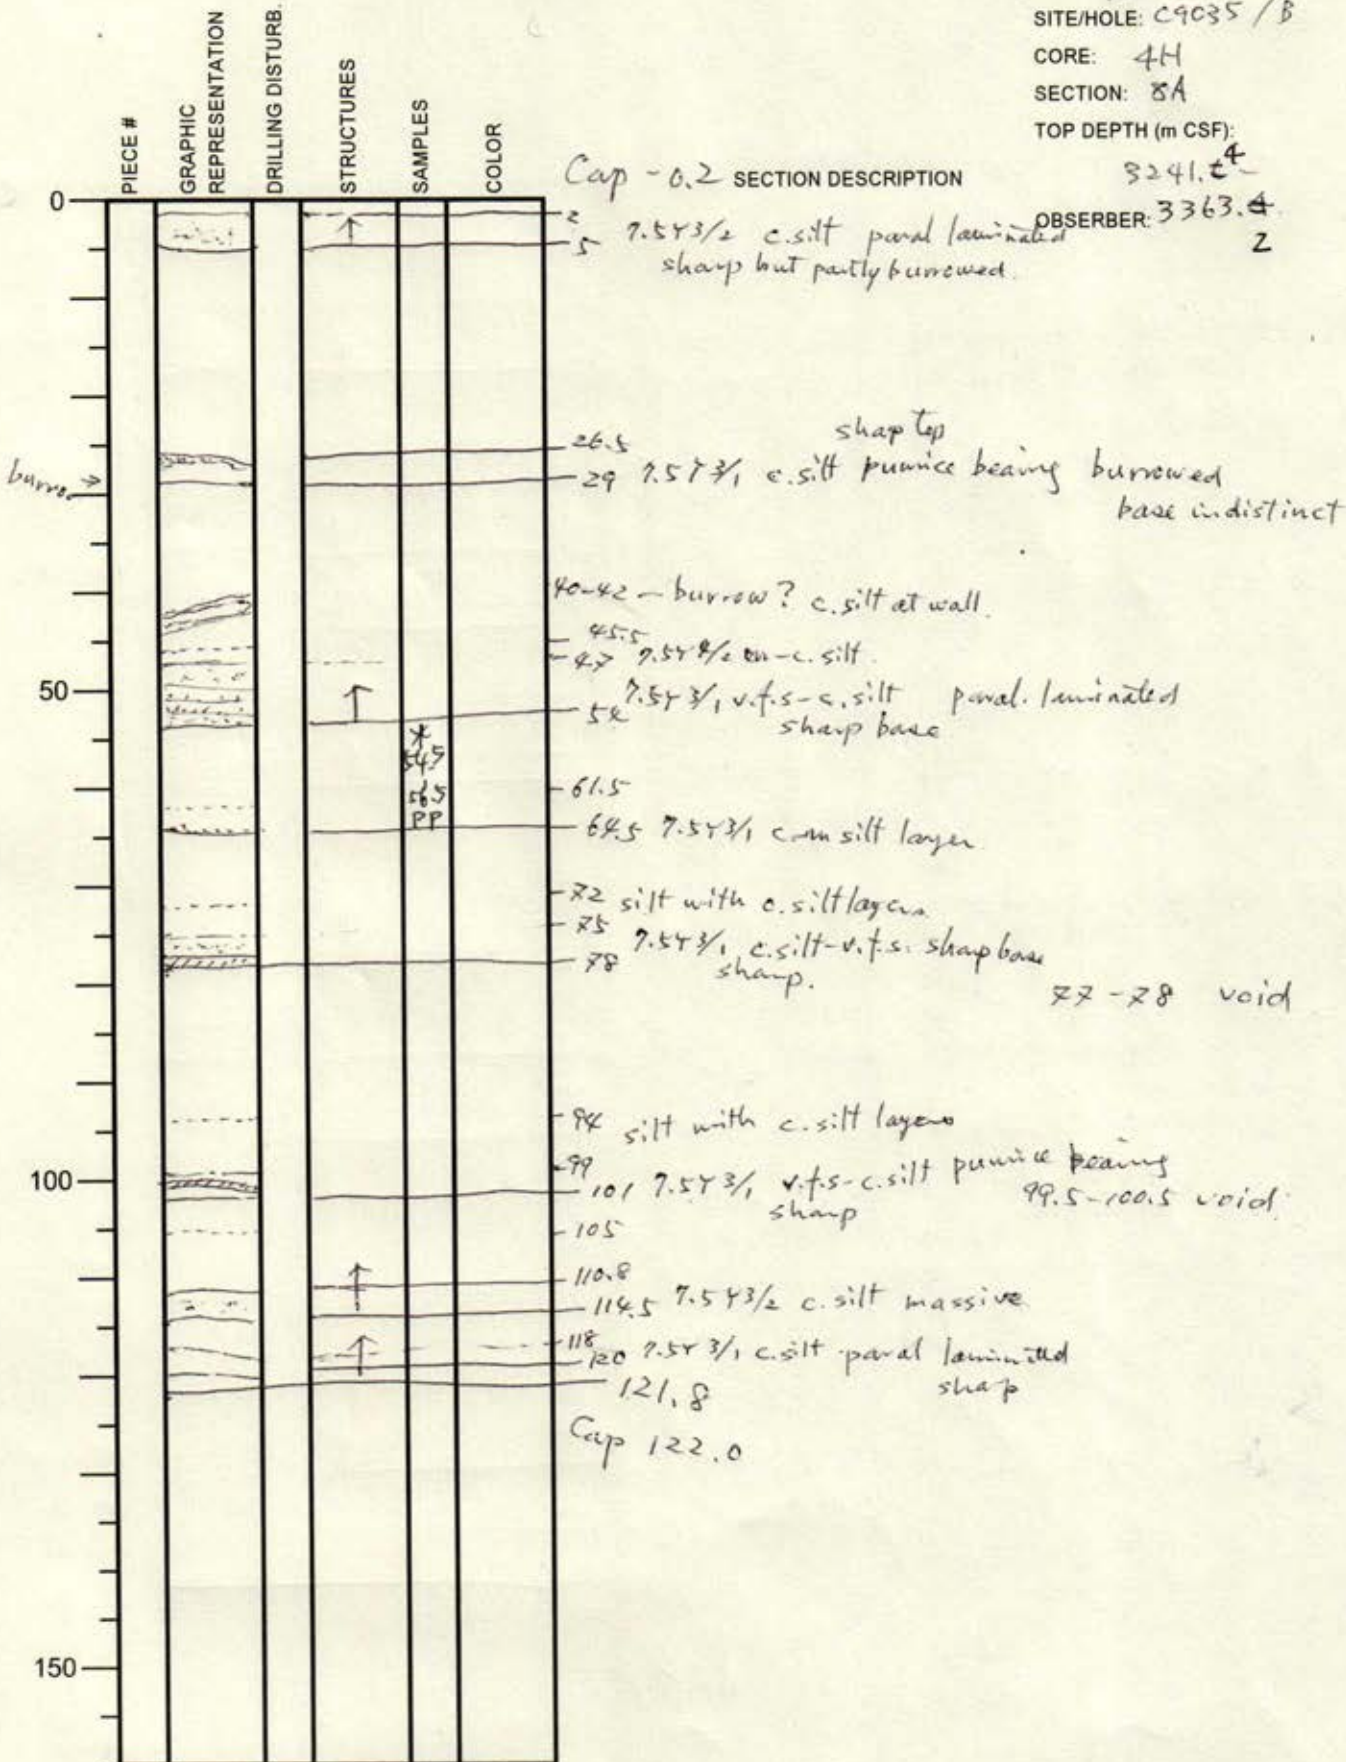 SITE/HOLE: C9035 / B
CORE: 4H
SECTION: 8A
TOP DEPTH (m CSF):
3241.4 -
OBSERBER: 3363.2
PIECE #
GRAPHIC REPRESENTATION
DRILLING DISTURB.
STRUCTURES
SAMPLES
COLOR
Cap - 0.2 SECTION DESCRIPTION
0
2
5 7.5Y3/2 c.silt paral laminated
sharp but partly burrowed.
26.5 sharp top
burro
29 7.5Y3/1 c.silt pumice bearing burrowed
base indistinct
40-42 - burrow? c.silt at wall.
45.5
47 7.5Y /2 m-c.silt.
50
54 7.5Y3/1 v.f.s-c.silt paral. laminated
sharp base
54.5
56.5
PP
61.5
64.5 7.5Y3/1 c-m silt layer
72 silt with c.silt layers
75
78 7.5Y3/1 c.silt-v.f.s. sharp base
sharp.
77-78 void
94 silt with c.silt layers
99
100
101 7.5Y3/1 v.f.s-c.silt pumice bearing
sharp 99.5-100.5 void
105
110.8
114.5 7.5Y3/2 c.silt massive
118
120 7.5Y3/1 c.silt paral laminated
shap
121.8
Cap 122.0
150